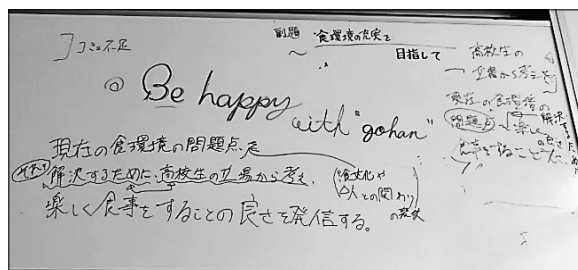 コミュ不足
副題 食環境の充実を
目指して
◎ Be happy
with "gohan"
現在の食環境の問題点を
解決するために、高校生の立場から考え、
楽しく食事をすることの良さを発信する。
食文化や
人との関わり
の変化
高校生の
立場から考え
現在の食環境の
問題点
解決する
楽しい
食事をすること